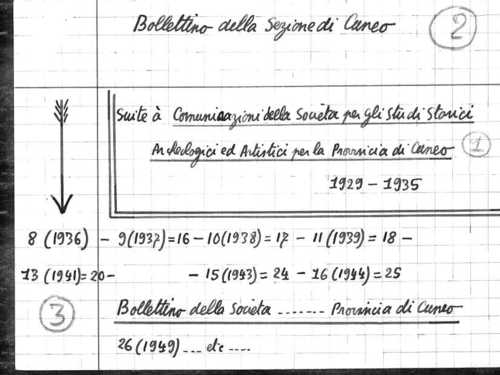 Bollettino della Sezione di Cuneo
2
Suite à Comunicazioni della Societa per gli studi Storici
Archeologici ed Artistici per la Provincia di Cuneo 1
1929 - 1935
8 (1936) - 9 (1937) = 16 - 10 (1938) = 17 - 11 (1939) = 18 -
13 (1941) = 20 - - 15 (1943) = 24 - 16 (1944) = 25
3 Bollettino della Societa ....... Provincia di Cuneo
26 (1949) .... etc ....